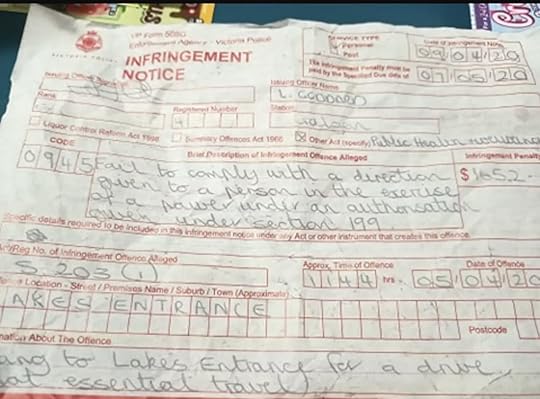 VP Form 508G
SERVICE TYPE
Date of Infringement Notice
Enforcement Agency - Victoria Police
Personal
09 04 20
VICTORIA POLICE
INFRINGEMENT
NOTICE
Post
The Infringement Penalty must be
paid by the Specified Due date of
07 05 20
Issuing Officer
Issuing Officer Name
L. GODDARD
Rank
Registered Number
Station
4
Liquor Control Reform Act 1998
Summary Offences Act 1966
Other Act (specify) Public Health
CODE
Brief Description of Infringement Offence Alleged
Infringement Penalty
0945
Fail to comply with a direction
$1652.-
given to a person in the exercise
of a power under an authorisation
given under section 199
Specific details required to be included in this infringement notice under any Act or other instrument that creates this offence.
Act/Reg No. of Infringement Offence Alleged
Approx. Time of Offence
Date of Offence
S. 203 (1)
1144 hrs
05 04 20
Location - Street / Premises Name / Suburb / Town (Approximate)
AKES ENTRANCE
Postcode
mation About The Offence
ing to Lakes Entrance for a drive
essential travel)